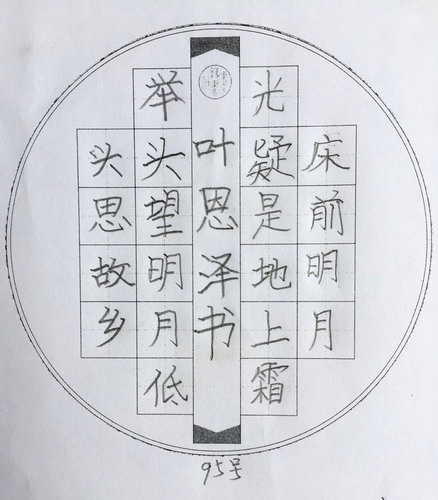 床前明月
光疑是地上霜
举头望明月低
头思故乡
叶恩泽书
95号